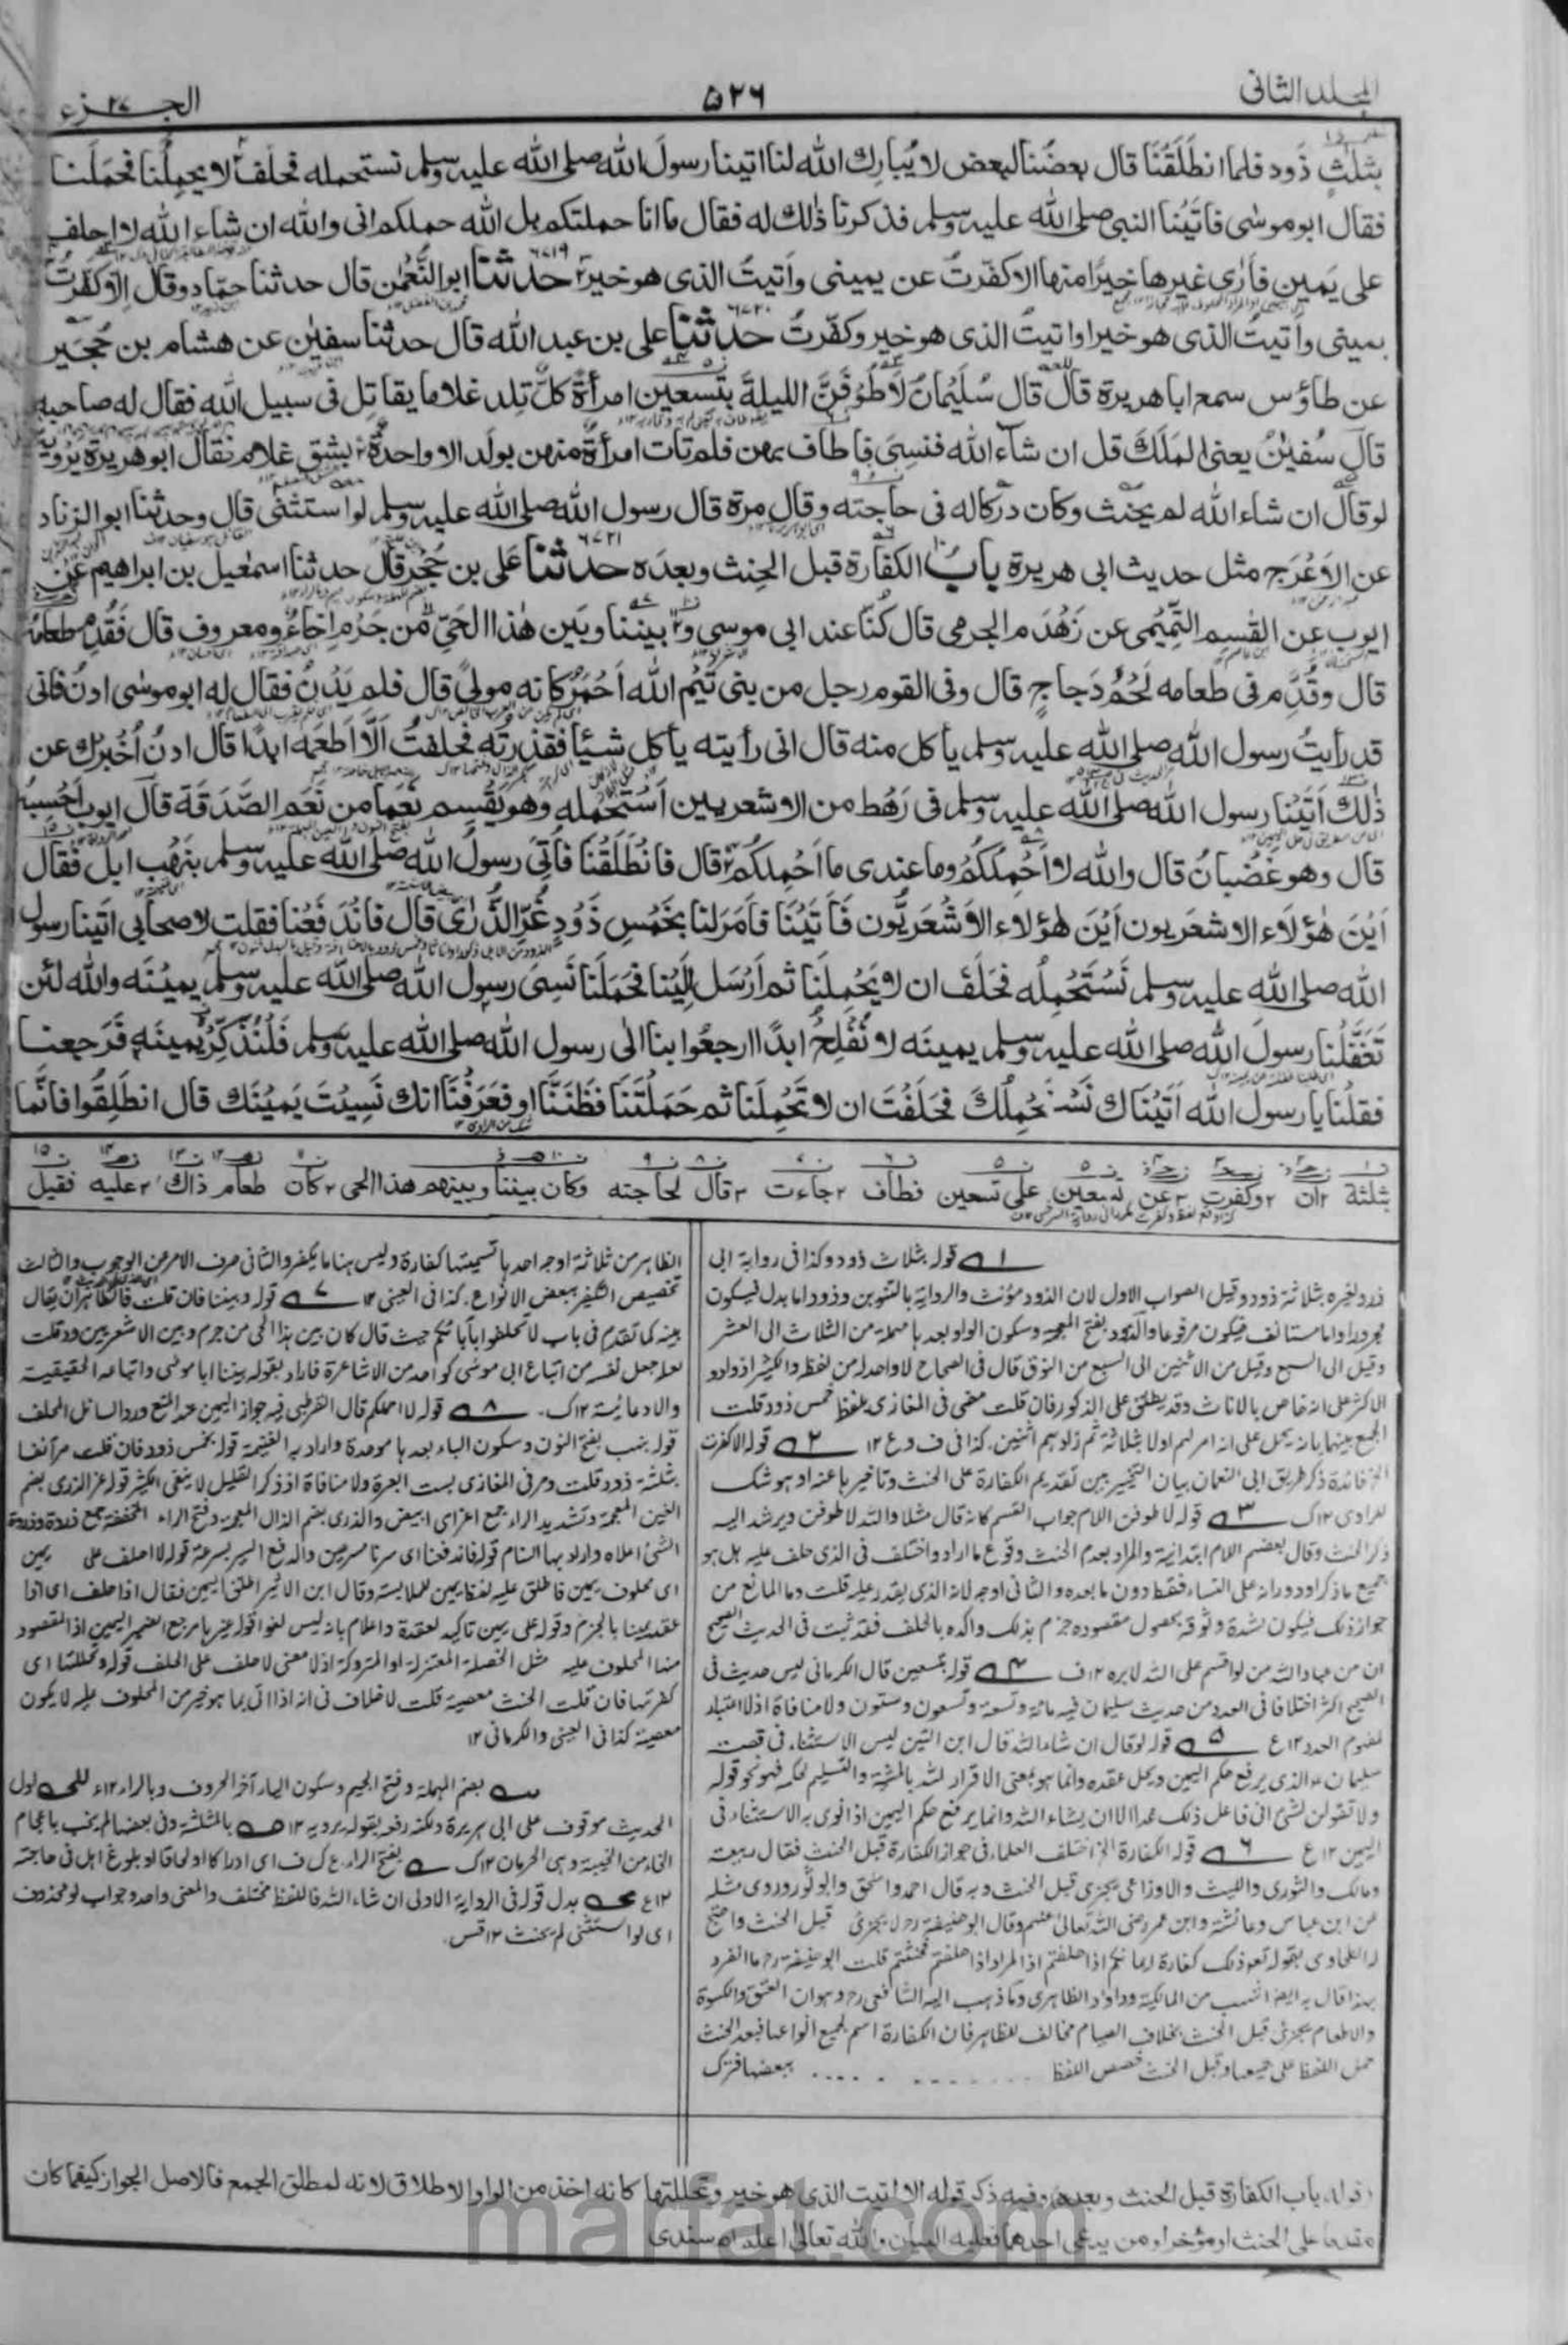 المجلد الثانی
۵۲۶
الجزء ۲۷
بثلث ذود فلما انطلقنا قال بعضنا لبعض لا يبارك الله لنا اتينا رسول الله صلى الله عليه وسلم نستحمله فحلف لا يحملنا فحملنا
فقال ابو موسى فاتينا النبى صلى الله عليه وسلم فذكرنا ذلك له فقال ما انا حملتكم بل الله حملكم انى والله ان شاء الله لا احلف
على يمين فارى غيرها خيرا منها الا كفرت عن يمينى واتيت الذى هو خير ۶۷۱۹ حدثنا ابو النعمن قال حدثنا حماد وقال الا كفرت
يمينى واتيت الذى هو خير او اتيت الذى هو خير وكفرت ۶۷۲۰ حدثنا على بن عبد الله قال حدثنا سفين عن هشام بن حجير
عن طاؤس سمع ابا هريرة قال قال سليمان لاطوفن الليلة بتسعين امرأة كل تلد غلاما يقاتل فى سبيل الله فقال له صاحبه
قال سفين يعنى الملك قل ان شاء الله فنسى فاطاف بهن فلم تات امرأة منهن بولد الا واحدة بشق غلام فقال ابو هريرة يرويه
لو قال ان شاء الله لم يحنث وكان دركا له فى حاجته وقال مرة قال رسول الله صلى الله عليه وسلم لو استثنى قال وحدثنا ابو الزناد
عن الاعرج مثل حديث ابى هريرة باب الكفارة قبل الحنث وبعده ۶۷۲۱ حدثنا على بن حجر قال حدثنا اسمعيل بن ابراهيم عن
ايوب عن القسم التميمى عن زهدم الجرمى قال كنا عند ابى موسى و بيننا وبين هذا الحى من جرم اخاء ومعروف قال فقدم طعامه
قال وقدم فى طعامه لحم دجاج قال وفى القوم رجل من بنى تيم الله احمر كانه مولى قال فلم يدن فقال له ابو موسى ادن فانى
قد رأيت رسول الله صلى الله عليه وسلم يأكل منه قال انى رأيته يأكل شيئا فقذرته فحلفت الا اطعمه ابدا قال ادن اخبرك عن
ذلك اتينا رسول الله صلى الله عليه وسلم فى رهط من الاشعريين استحمله وهو يقسم نعما من نعم الصدقة قال ايوب احسبه
قال وهو غضبان قال والله لا احملكم وما عندى ما احملكم قال فانطلقنا فاتى رسول الله صلى الله عليه وسلم بنهب ابل فقال
اين هؤلاء الاشعريون اين هؤلاء الاشعريون فاتينا فامر لنا بخمس ذود غر الذرى قال فاندفعنا فقلت لاصحابى اتينا رسول
الله صلى الله عليه وسلم نستحمله فحلف ان لا يحملنا ثم ارسل الينا فحملنا نسى رسول الله صلى الله عليه وسلم يمينه والله لئن
تغفلنا رسول الله صلى الله عليه وسلم يمينه لا نفلح ابدا ارجعوا بنا الى رسول الله صلى الله عليه وسلم فلنذكره يمينه فرجعنا
فقلنا يا رسول الله اتيناك نستحملك فحلفت ان لا تحملنا ثم حملتنا فظننا او فعرفنا انك نسيت يمينك قال انطلقوا فانما
بثلثة ان وكفرت عن تسعين على تسعين فطاف جاءت قال لحاجته وكان بيننا وبينهم هذا الحى كان طعام ذاك عليه فقيل
۱ قوله بثلاث ذود وكذا فى رواية ابى
ذر ولغيره بثلاثة ذود وقيل الصواب الاول لان الذود مؤنث والرواية بالتنوين وذود اما بدل فيكون
مجرورا واما مستانف فيكون مرفوعا والذود بفتح المعجمة وسكون الواو بعدها مهملة من الثلاث الى العشر
وقيل الى السبع وقيل من الاثنين الى السبع من النوق قال فى الصحاح لا واحد له من لفظه والكثير اذواد و
الاكثر على انه خاص بالاناث وقد يطلق على الذكور فان قلت مضى فى المغازى بلفظ خمس ذود قلت
الجمع بينهما بانه يحمل على انه امر لهم اولا بثلاثة ثم زادهم اثنين. كذا فى ف وع ۱۲ ۲ قوله الا كفرت
الخ فائدة ذكر طريق ابى النعمان بيان التخيير بين تقديم الكفارة على الحنث وتاخيرها عنه او هو شك
للراوى ۱۲ ك ۳ قوله لاطوفن اللام جواب القسم كانه قال مثلا والله لاطوفن ويرشد اليه
ذكر الحنث وقال بعضهم اللام ابتدائية والمراد بعدم الحنث وقوع ما اراد واختلف فى الذى حلف عليه هل هو
جميع ما ذكر او دورانه على النساء فقط دون ما بعده والثانى اوجه لانه الذى يقدر عليه قلت وما المانع من
جواز ذلك فيكون لشدة وثوقه بحصول مقصوده جزم بذلك واكده بالحلف فقد ثبت فى الحديث الصحيح
ان من عباد الله من لو اقسم على الله لابره ۱۲ ف ۴ قوله بتسعين قال الكرمانى ليس حديث فى
الصحيح اكثر اختلافا فى العدد من حديث سليمان فيه مائة وتسعة وتسعون وستون ولا منافاة اذ لا اعتبار
لمفهوم العدد ۱۲ ع ۵ قوله لو قال ان شاء الله قال ابن التين ليس الاستثناء فى قصة
سليمان الذى يرفع حكم اليمين ويحل عقده وانما هو بمعنى الاقرار لله بالمشية والتسليم لحكمه فهو نحو قوله
ولا تقولن لشئ انى فاعل ذلك غدا الا ان يشاء الله وانما يرفع حكم اليمين اذا نوى به الاستثناء فى
اليمين ۱۲ ع ۶ قوله الكفارة الخ اختلف العلماء فى جواز الكفارة قبل الحنث فقال ربيعة
ومالك والثورى والليث والاوزاعى يجزى قبل الحنث وبه قال احمد واسحق وابو ثور وروى مثله
عن ابن عباس وعائشة وابن عمر رضى الله تعالى عنهم وقال ابو حنيفة رح لا يجزئ قبل الحنث واحتج
له الطحاوى بقوله تعالى ذلك كفارة ايمانكم اذا حلفتم اذ المراد اذا حلفتم فحنثتم قلت ابو حنيفة رح ما انفرد
بهذا قال به ايضا اشهب من المالكية وداود الظاهرى وما ذهب اليه الشافعى رح وهو ان العتق والكسوة
والاطعام يجزئ قبل الحنث بخلاف الصيام مخالف للظاهر فان الكفارة اسم لجميع انواعها فبعد الحنث
حمل اللفظ على جميعها وقبل الحنث خصص اللفظ ببعضها فترك
الظاهر من ثلاثة اوجه احدها تسميتها كفارة وليس هنا ما يكفر والثانى صرف الامر عن الوجوب والثالث
تخصيص الكفير ببعض الانواع. كذا فى العينى ۱۲ ۷ قوله وبيننا فان قلت فالظاهر ان يقال
بينه كما تقدم فى باب لا تحلفوا بآبائكم حيث قال كان بين هذا الحى من جرم وبين الاشعريين ود قلت
لعله جعل نفسه من اتباع ابى موسى كواحد من الاشاعرة فاراد بقوله بيننا ابا موسى واتباعه الحقيقية
والادعائية ۱۲ ك. ۸ قوله لا احملكم قال القرطبى فيه جواز اليمين عند المنع ورد السائل الملحف
قوله بنهب بفتح النون وسكون الهاء بعدها موحدة واراد به الغنيمة قوله بخمس ذود فان قلت مر آنفا
بثلثة ذود قلت ومر فى المغازى بستة ابعرة ولا منافاة اذ ذكر القليل لا ينفى الكثير قوله غر الذرى بضم
الغين المعجمة وتشديد الراء جمع اغر اى ابيض والذرى بضم الذال المعجمة وفتح الراء المخففة جمع ذروة وذروة
الشئ اعلاه واراد بها السنام قوله فاندفعنا اى سرنا مسرعين والدفع السير بسرعة قوله لا احلف على يمين
اى محلوف يمين فاطلق عليه لفظ يمين للملابسة وقال ابن الاثير اطلق اليمين فقال اذا حلف اى اذا
عقد يمينا بالجزم وقوله على يمين تاكيد لعقده واعلام بانه ليس لغوا قوله غيرها مرجع الضمير اليمين اذ المقصود
منها المحلوف عليه مثل الخصلة المعتزلة او المتروكة اذ لا معنى لا حلف على الحلف قوله وتحللتها اى
كفرتها فان قلت الحنث معصية قلت لا خلاف فى انه اذا اتى بما هو خير من المحلوف عليه لا يكون
معصية كذا فى العينى والكرمانى ۱۲
بضم المهملة وفتح الجيم وسكون الياء آخر الحروف وبالراء ۱۲ ع اول
الحديث موقوف على ابى هريرة ولكنه رفعه بقوله يرويه ۱۲ بالمثلثة وفى بعضها لم يخب باعجام
الخاء من الخيبة وهى الحرمان ۱۲ ك بفتح الراء. ع ك ف اى ادراكا او لحاقا او بلوغ امل فى حاجته
۱۲ ع بدل قوله فى الرواية الاولى ان شاء الله فاللفظ مختلف والمعنى واحد وجواب لو محذوف
اى لو استثنى لم يحنث ۱۲ قس.
قوله باب الكفارة قبل الحنث وبعده وفيه ذكر قوله الا اتيت الذى هو خير وتحللتها كانه اخذ من الواو الاطلاق لانه لمطلق الجمع فالاصل الجواز كيفما كان
مقدما على الحنث او مؤخرا ومن يدعى احدهما فعليه البيان والله تعالى اعلم اه سندى
marfat.com